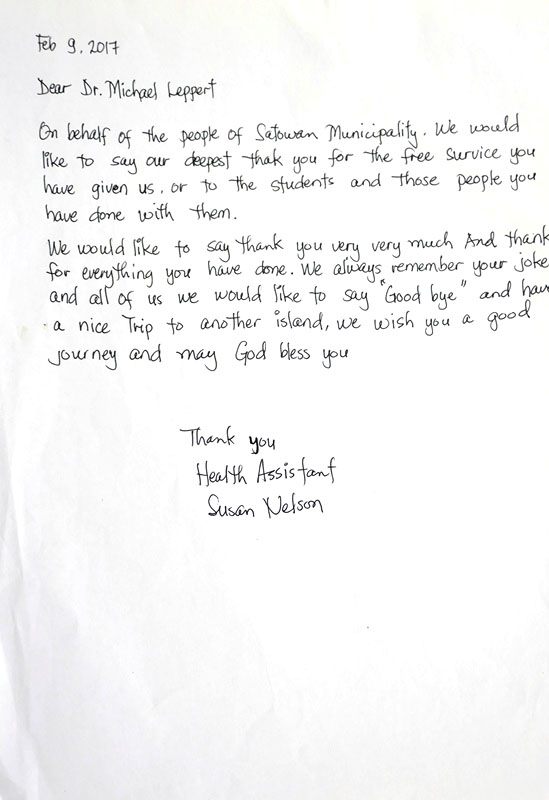 Feb 9, 2017
Dear Dr. Michael Leppert
On behalf of the people of Satowan Municipality. We would
like to say our deepest thak you for the free survice you
have given us, or to the students and those people you
have done with them.
We would like to say thank you very very much And thank
for everything you have done. We always remember your joke
and all of us we would like to say "Good bye" and have
a nice Trip to another island, we wish you a good
journey and may God bless you
Thank you
Health Assistant
Susan Nelson